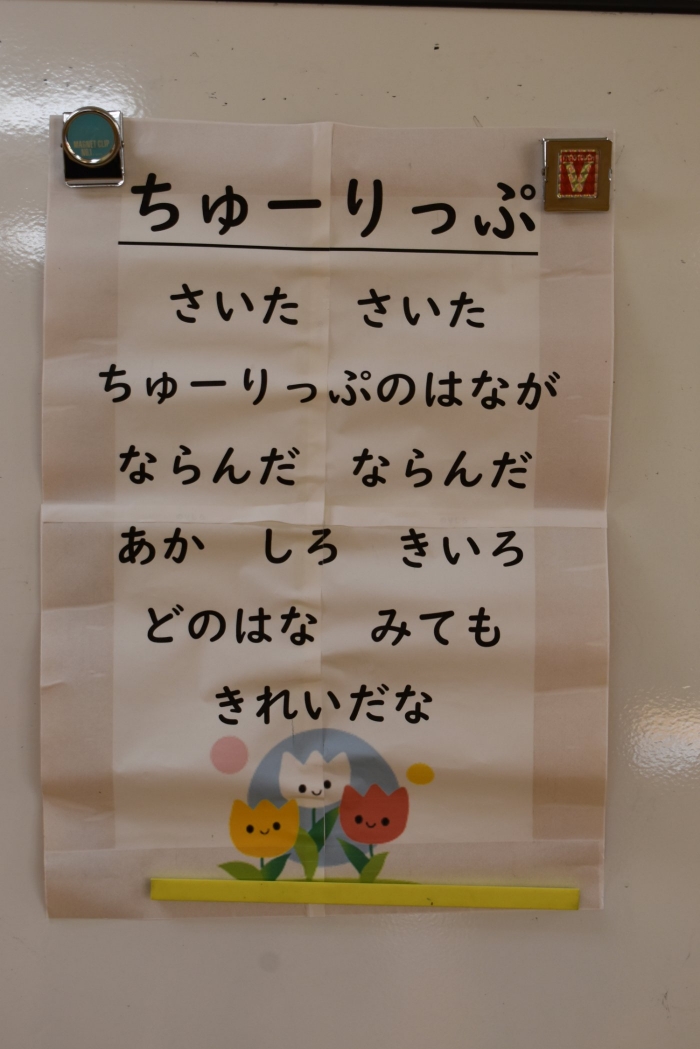 ちゅーりっぷ
さいた　さいた
ちゅーりっぷのはなが
ならんだ　ならんだ
あか　しろ　きいろ
どのはな　みても
きれいだな
MAGNET CLIP